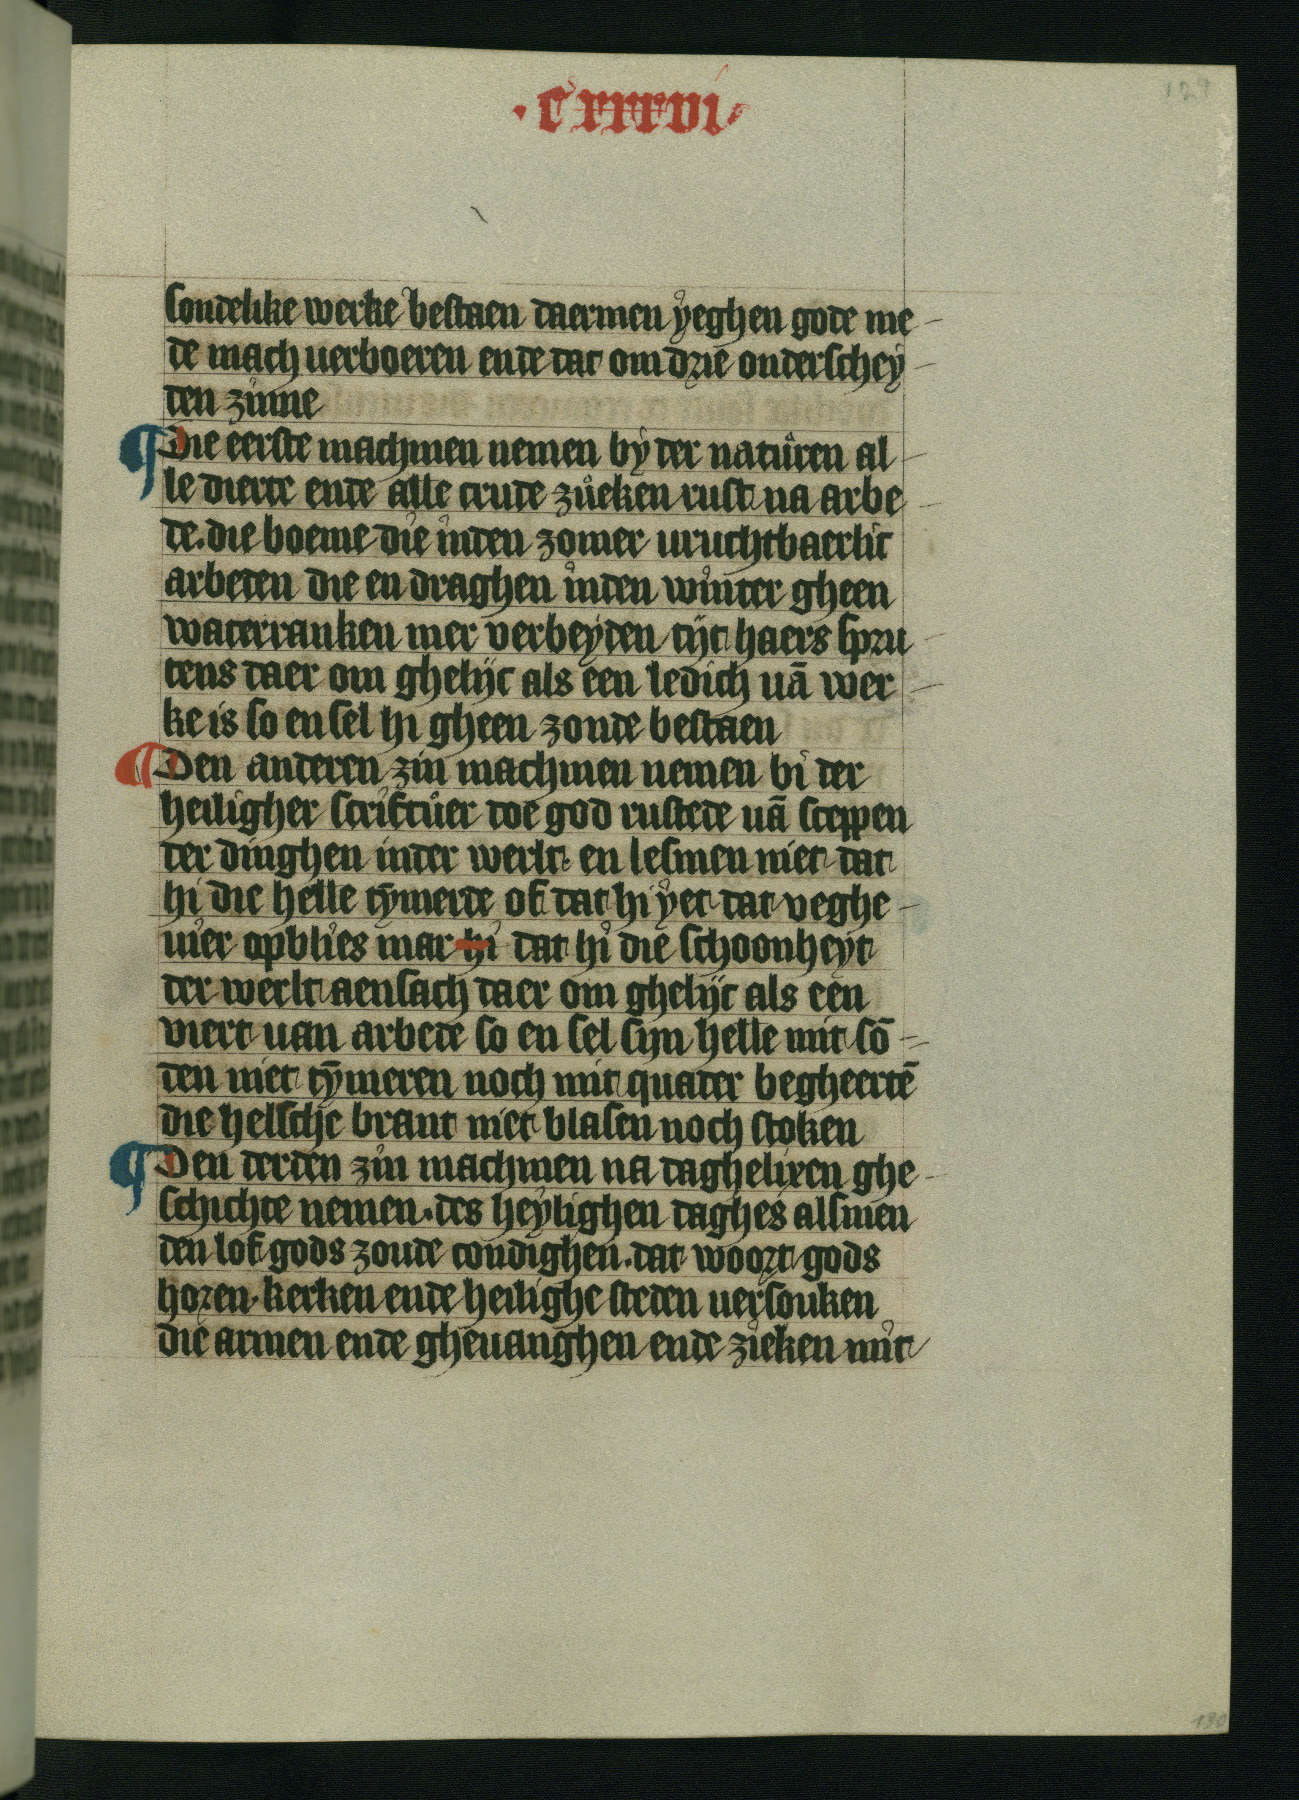 ·cxxxvi·
129
sondelike werke bestaen daermen yeghen gode me-
de mach uerboeren ende dat om drie onderschey-
den zinne
¶ Die eerste machmen nemen by der naturen al-
le dierte ende alle crude zueken rust na arbe-
de. die boeme die inden zomer uruchtbaerlic
arbeden die en draghen inden winter gheen
waterranken mer verbeyden tijt haers spru-
tens daer om ghelijc als een ledich uā wer-
ke is so en sel hi gheen zonde bestaen
¶ Den anderen zin machmen nemen bi der
heiligher scriftuer doe god rustede uā sceppen
der dinghen inder werlt. en lesmen niet dat
hi die helle tȳmerde of dat hi yet dat veghe-
uier opblies mar hi dat hi die schoonheyt
der werlt aensach daer om ghelijc als een
viert uan arbede so en sel sijn helle mit sō-
den niet tȳmeren noch mit quader begheertē
die helsche brant niet blasen noch stoken
¶ Den derden zin machmen na daghelixen ghe-
schichte nemen. des heylighen daghes alsmen
den lof gods zoude condighen. dat woort gods
horen. kerken ende heilighe steden uersouken
die armen ende gheuanghen ende zieken mit
130